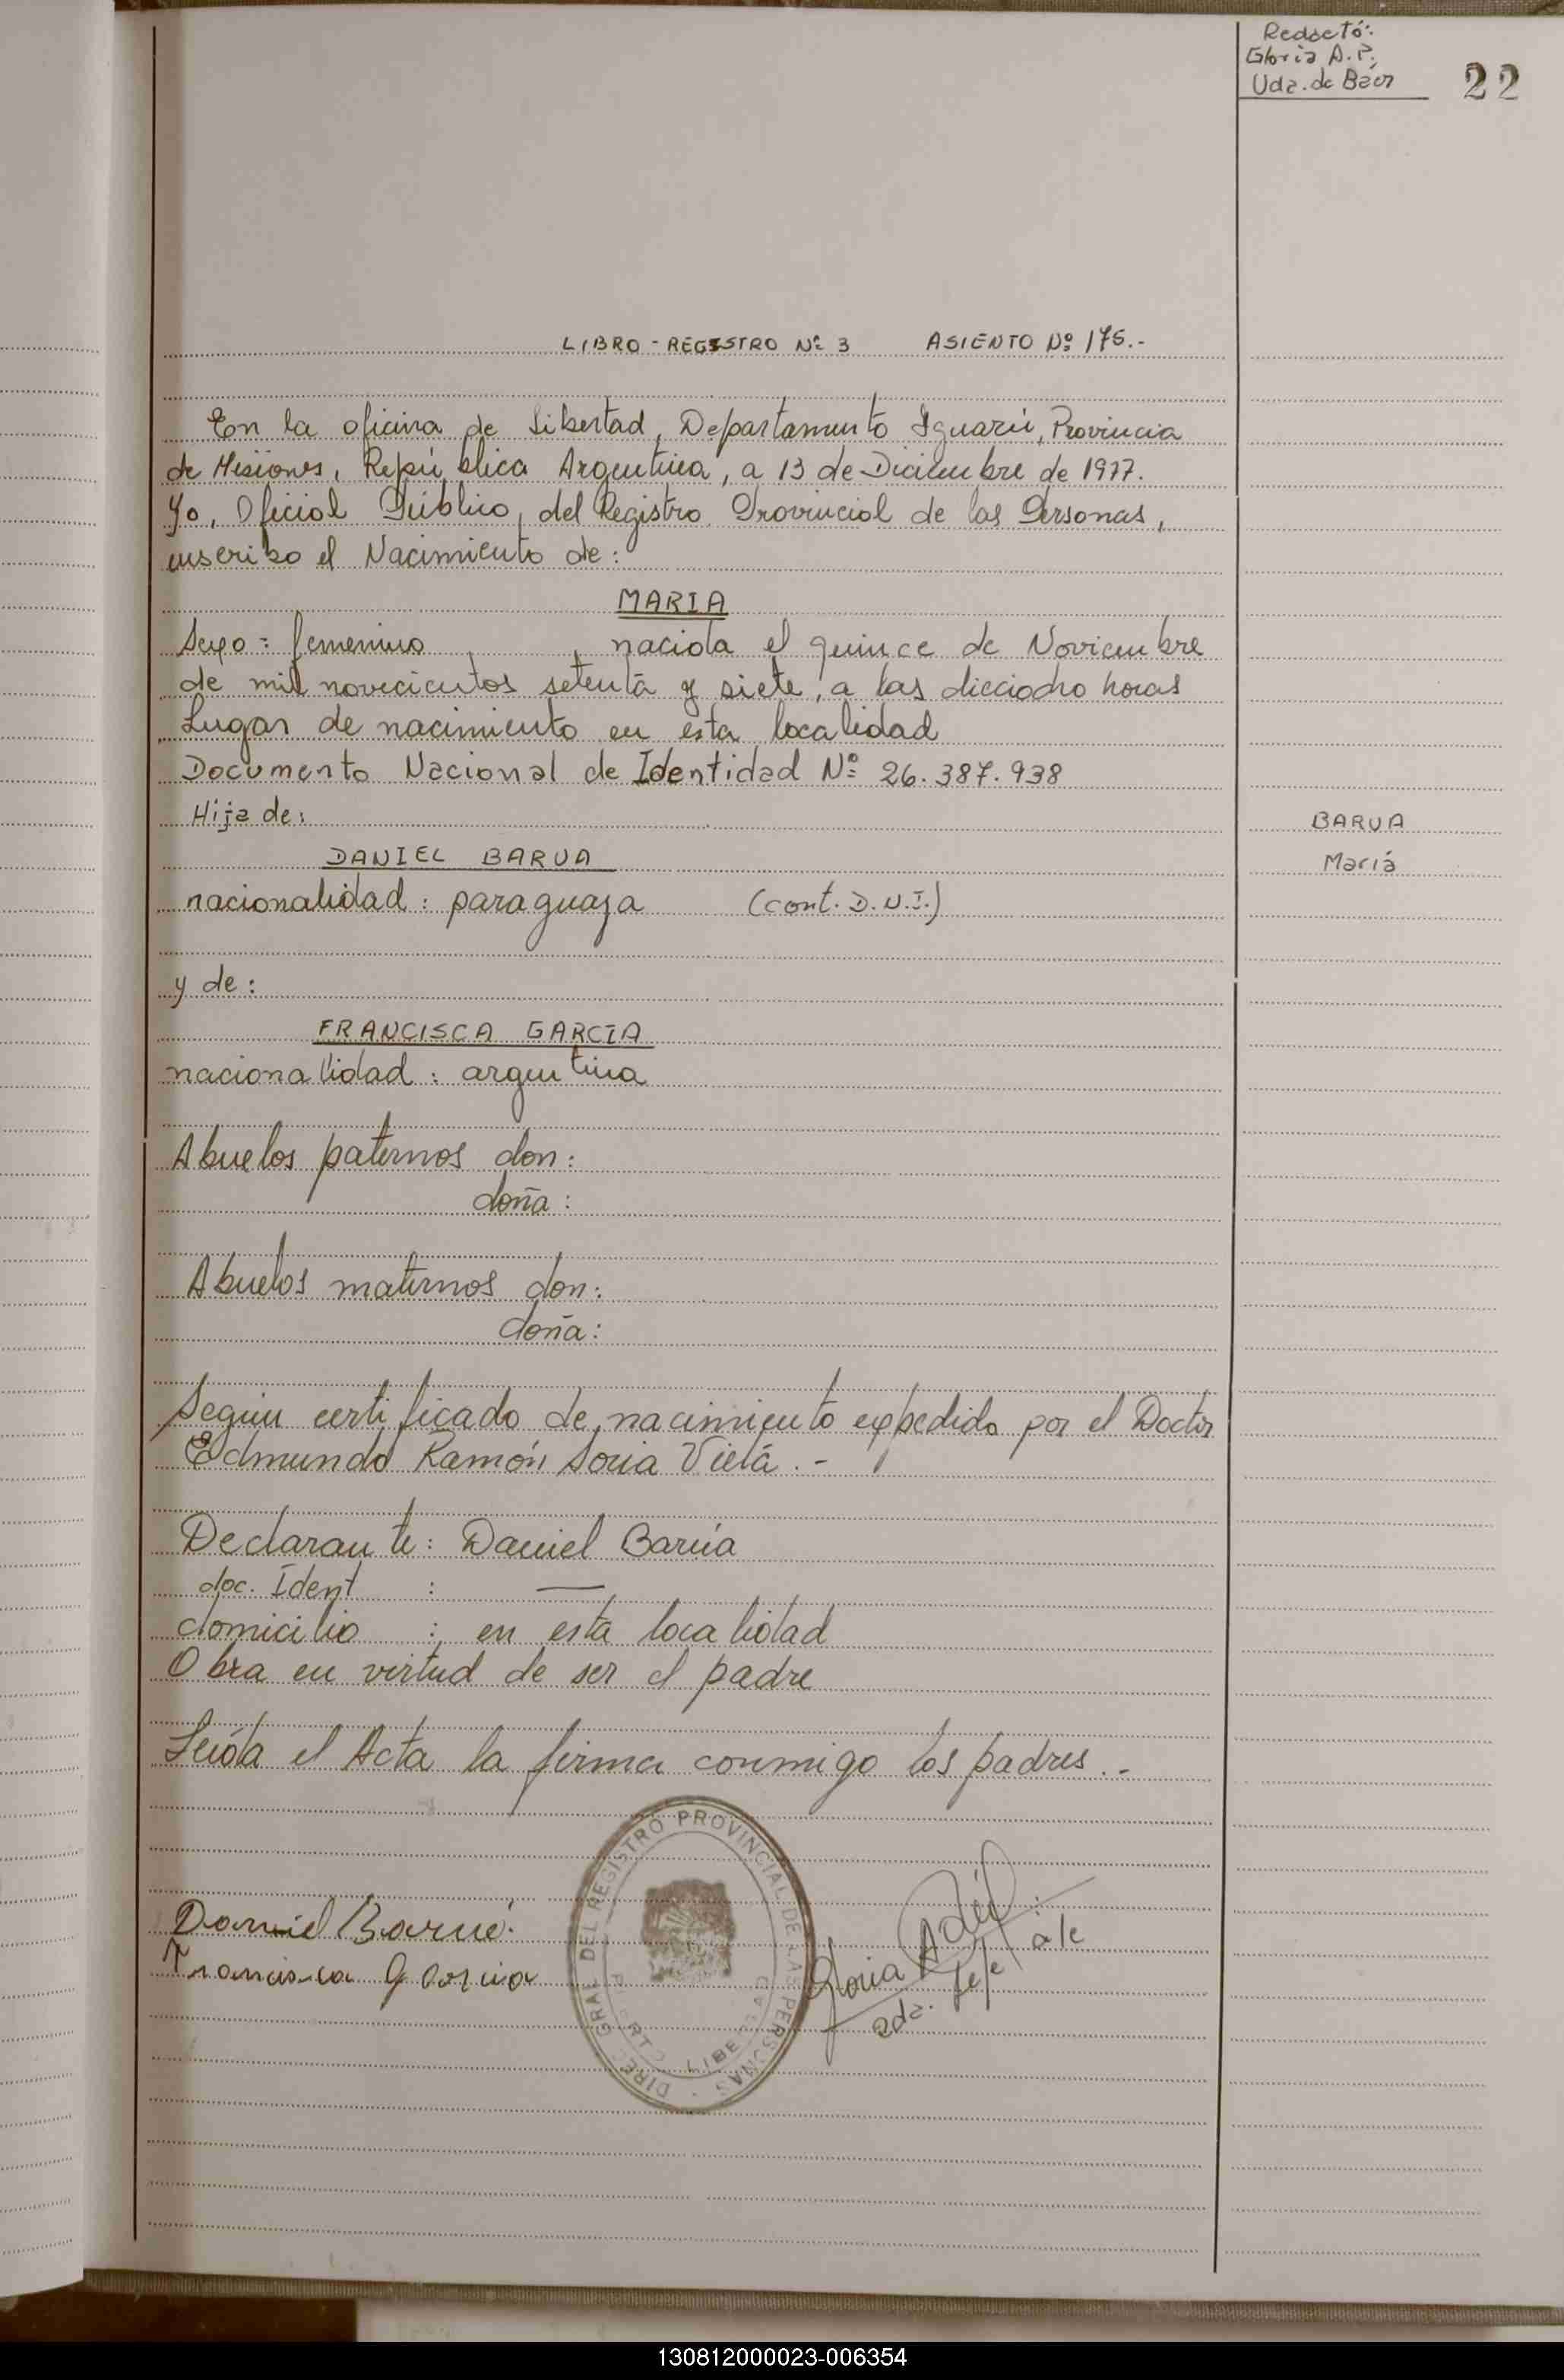 Redactó:
Gloria A. P.
Vda. de Báez
22
LIBRO - REGISTRO Nº 3 ASIENTO Nº 175.-
En la oficina de Libertad, Departamento Iguazú, Provincia
de Misiones, República Argentina, a 13 de Diciembre de 1977.
Yo, Oficial Público, del Registro Provincial de las Personas,
inscribo el Nacimiento de:
MARIA
Sexo: femenino, nacida el quince de Noviembre
de mil novecientos setenta y siete, a las dieciocho horas
Lugar de nacimiento en esta localidad
Documento Nacional de Identidad Nº 26.387.938
Hija de:
BARUA
DANIEL BARUA
María
nacionalidad: paraguaya (cont. D.N.I.)
y de:
FRANCISCA GARCIA
nacionalidad: argentina
Abuelos paternos don:
doña:
Abuelos maternos don:
doña:
Según certificado de nacimiento expedido por el Doctor
Edmundo Ramón Soria Vieta.-
Declarante: Daniel Barúa
doc. Ident : —
domicilio : en esta localidad
Obra en virtud de ser el padre
Leída el Acta la firma conmigo los padres.-
DIREC. GRAL. DEL REGISTRO PROVINCIAL DE LAS PERSONAS
PUERTO LIBERTAD
Daniel Barua
Francisca Garcia
Gloria
Jefe a/c